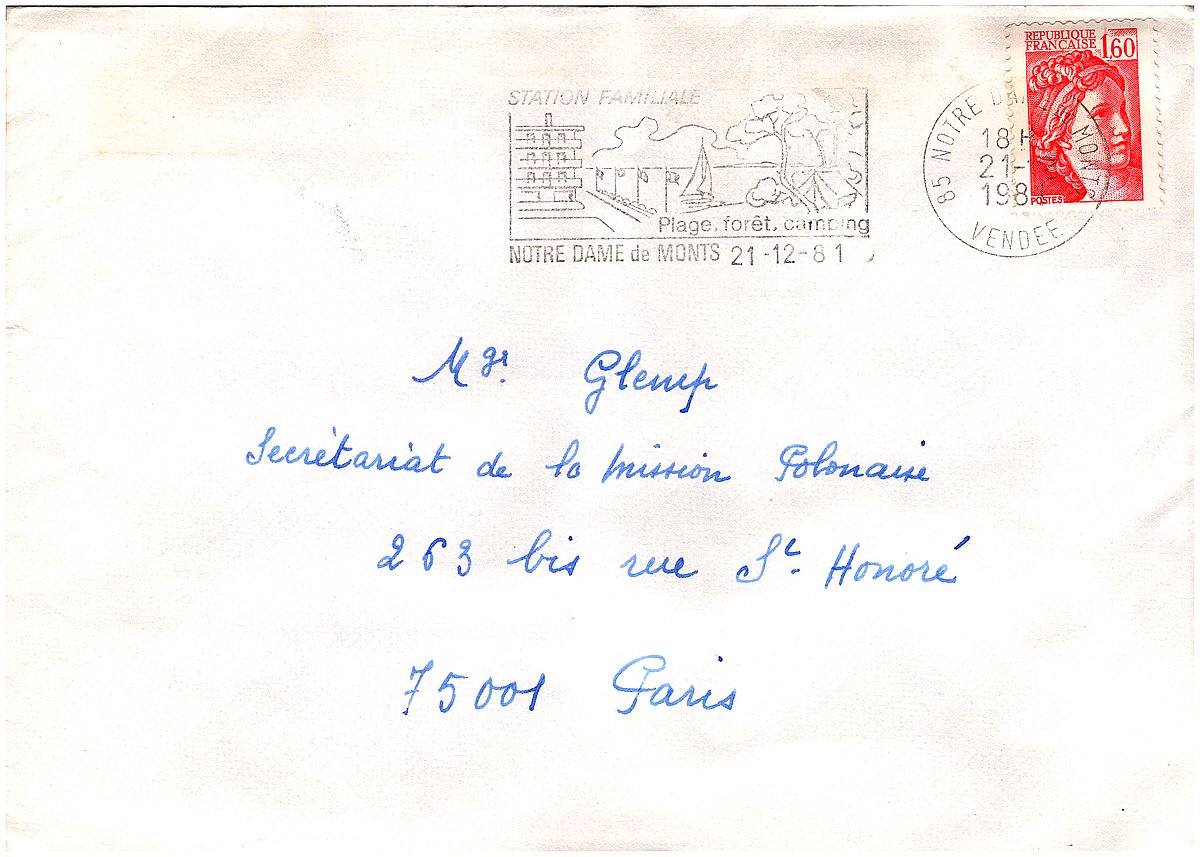 STATION FAMILIALE
Plage, forêt, camping
NOTRE DAME de MONTS 21-12-81
REPUBLIQUE
FRANÇAISE 1,60
POSTES
85 NOTRE MONTS
18H
21-
198
VENDEE
Mgr. Glemp
Secrétariat de la mission Polonaise
263 bis rue St. Honoré
75001 Paris